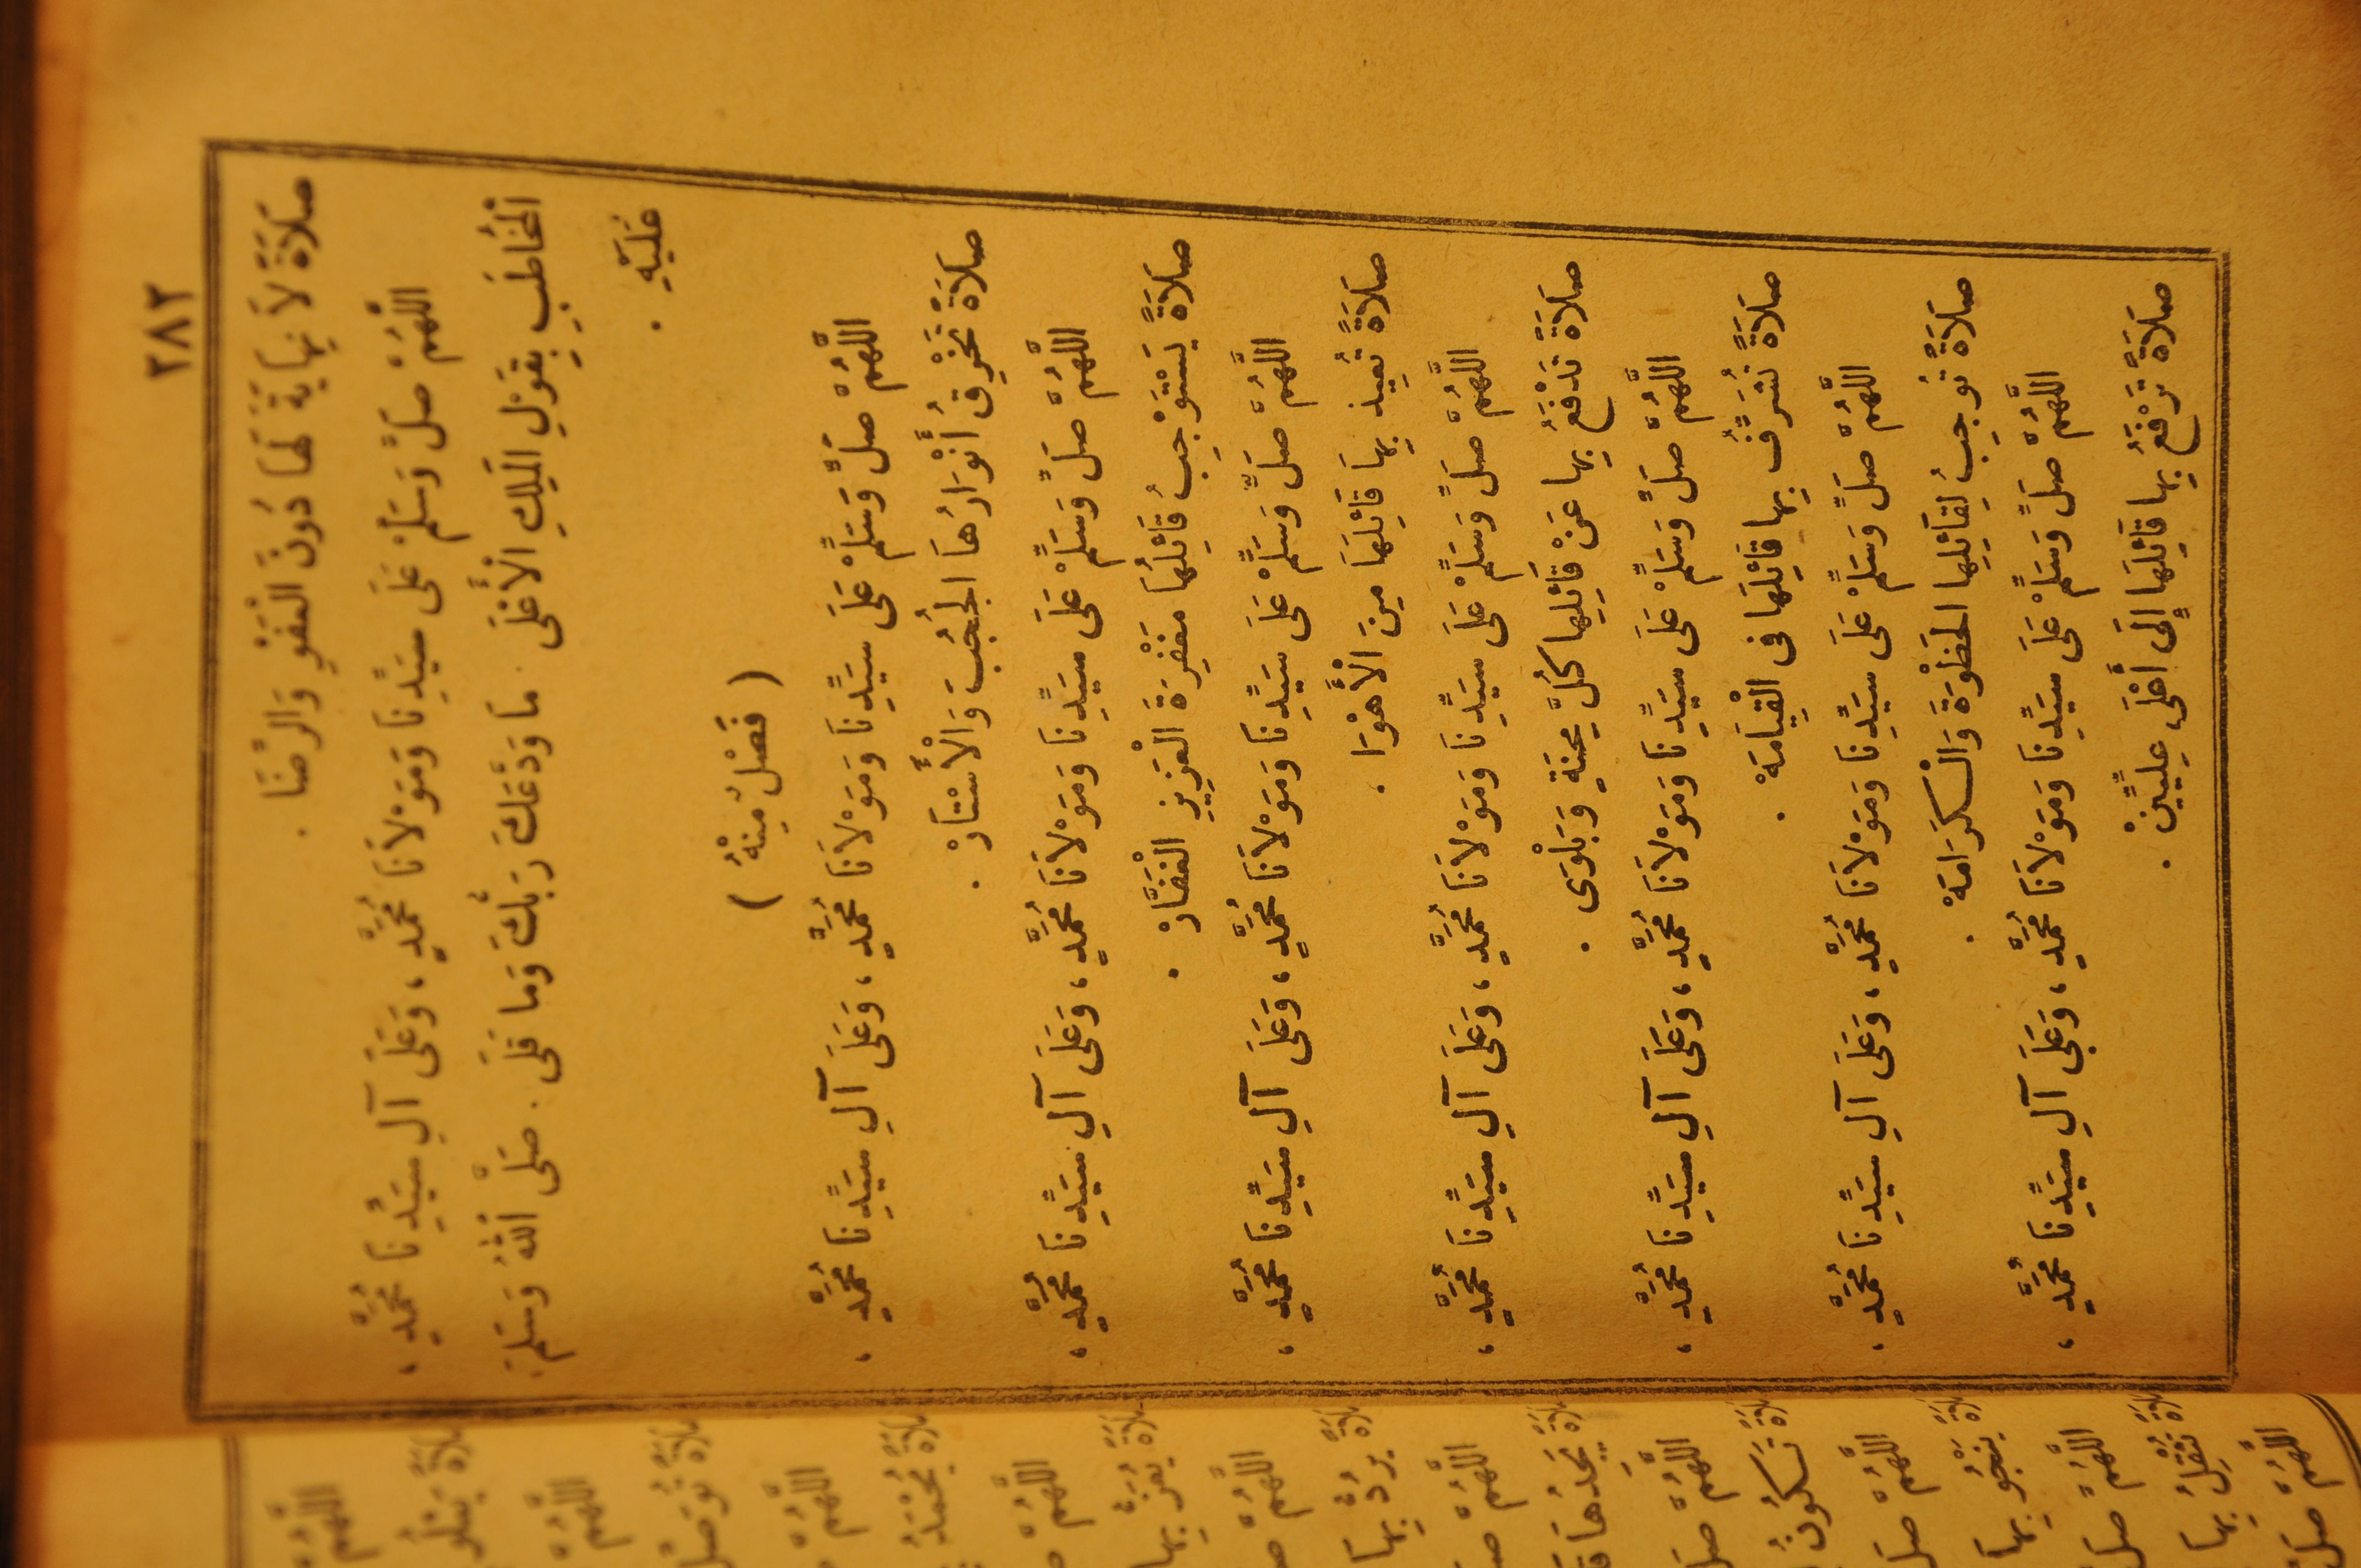 ٢٨٢
صَلَاةً لَا نِهَايَةَ لَهَا دُونَ الْعَفْوِ وَالرِّضَا .
اللَّهُمَّ صَلِّ وَسَلِّمْ عَلَى سَيِّدِنَا وَمَوْلَانَا مُحَمَّدٍ ، وَعَلَى آلِ سَيِّدِنَا مُحَمَّدٍ ،
الْمُخَاطَبِ بِقَوْلِ الْمَلِكِ الْأَعْلَى . مَا وَدَّعَكَ رَبُّكَ وَمَا قَلَى . صَلَّى اللهُ وَسَلَّمَ
عَلَيْهِ .
( فَصْلٌ مِنْهُ )
اللَّهُمَّ صَلِّ وَسَلِّمْ عَلَى سَيِّدِنَا وَمَوْلَانَا مُحَمَّدٍ ، وَعَلَى آلِ سَيِّدِنَا مُحَمَّدٍ ،
صَلَاةً تَخْرِقُ أَنْوَارُهَا الْحُجُبَ وَالْأَسْتَارْ .
اللَّهُمَّ صَلِّ وَسَلِّمْ عَلَى سَيِّدِنَا وَمَوْلَانَا مُحَمَّدٍ ، وَعَلَى آلِ سَيِّدِنَا مُحَمَّدٍ ،
صَلَاةً يَسْتَوْجِبُ قَائِلُهَا مَغْفِرَةَ الْعَزِيزِ الْغَفَّارْ .
اللَّهُمَّ صَلِّ وَسَلِّمْ عَلَى سَيِّدِنَا وَمَوْلَانَا مُحَمَّدٍ ، وَعَلَى آلِ سَيِّدِنَا مُحَمَّدٍ ،
صَلَاةً تُعِيذُ بِهَا قَائِلَهَا مِنَ الْأَهْوَا .
اللَّهُمَّ صَلِّ وَسَلِّمْ عَلَى سَيِّدِنَا وَمَوْلَانَا مُحَمَّدٍ ، وَعَلَى آلِ سَيِّدِنَا مُحَمَّدٍ ،
صَلَاةً تَدْفَعُ بِهَا عَنْ قَائِلِهَا كُلَّ مِحْنَةٍ وَبَلْوَى .
اللَّهُمَّ صَلِّ وَسَلِّمْ عَلَى سَيِّدِنَا وَمَوْلَانَا مُحَمَّدٍ ، وَعَلَى آلِ سَيِّدِنَا مُحَمَّدٍ ،
صَلَاةً تُشَرِّفُ بِهَا قَائِلَهَا فِى الْقِيَامَهْ .
اللَّهُمَّ صَلِّ وَسَلِّمْ عَلَى سَيِّدِنَا وَمَوْلَانَا مُحَمَّدٍ ، وَعَلَى آلِ سَيِّدِنَا مُحَمَّدٍ ،
صَلَاةً تُوجِبُ لِقَائِلِهَا الْحَظْوَةَ وَالْكَرَامَهْ .
اللَّهُمَّ صَلِّ وَسَلِّمْ عَلَى سَيِّدِنَا وَمَوْلَانَا مُحَمَّدٍ ، وَعَلَى آلِ سَيِّدِنَا مُحَمَّدٍ ،
صَلَاةً تَرْفَعُ بِهَا قَائِلَهَا إِلَى أَعْلَى عِلِّيِّينْ .